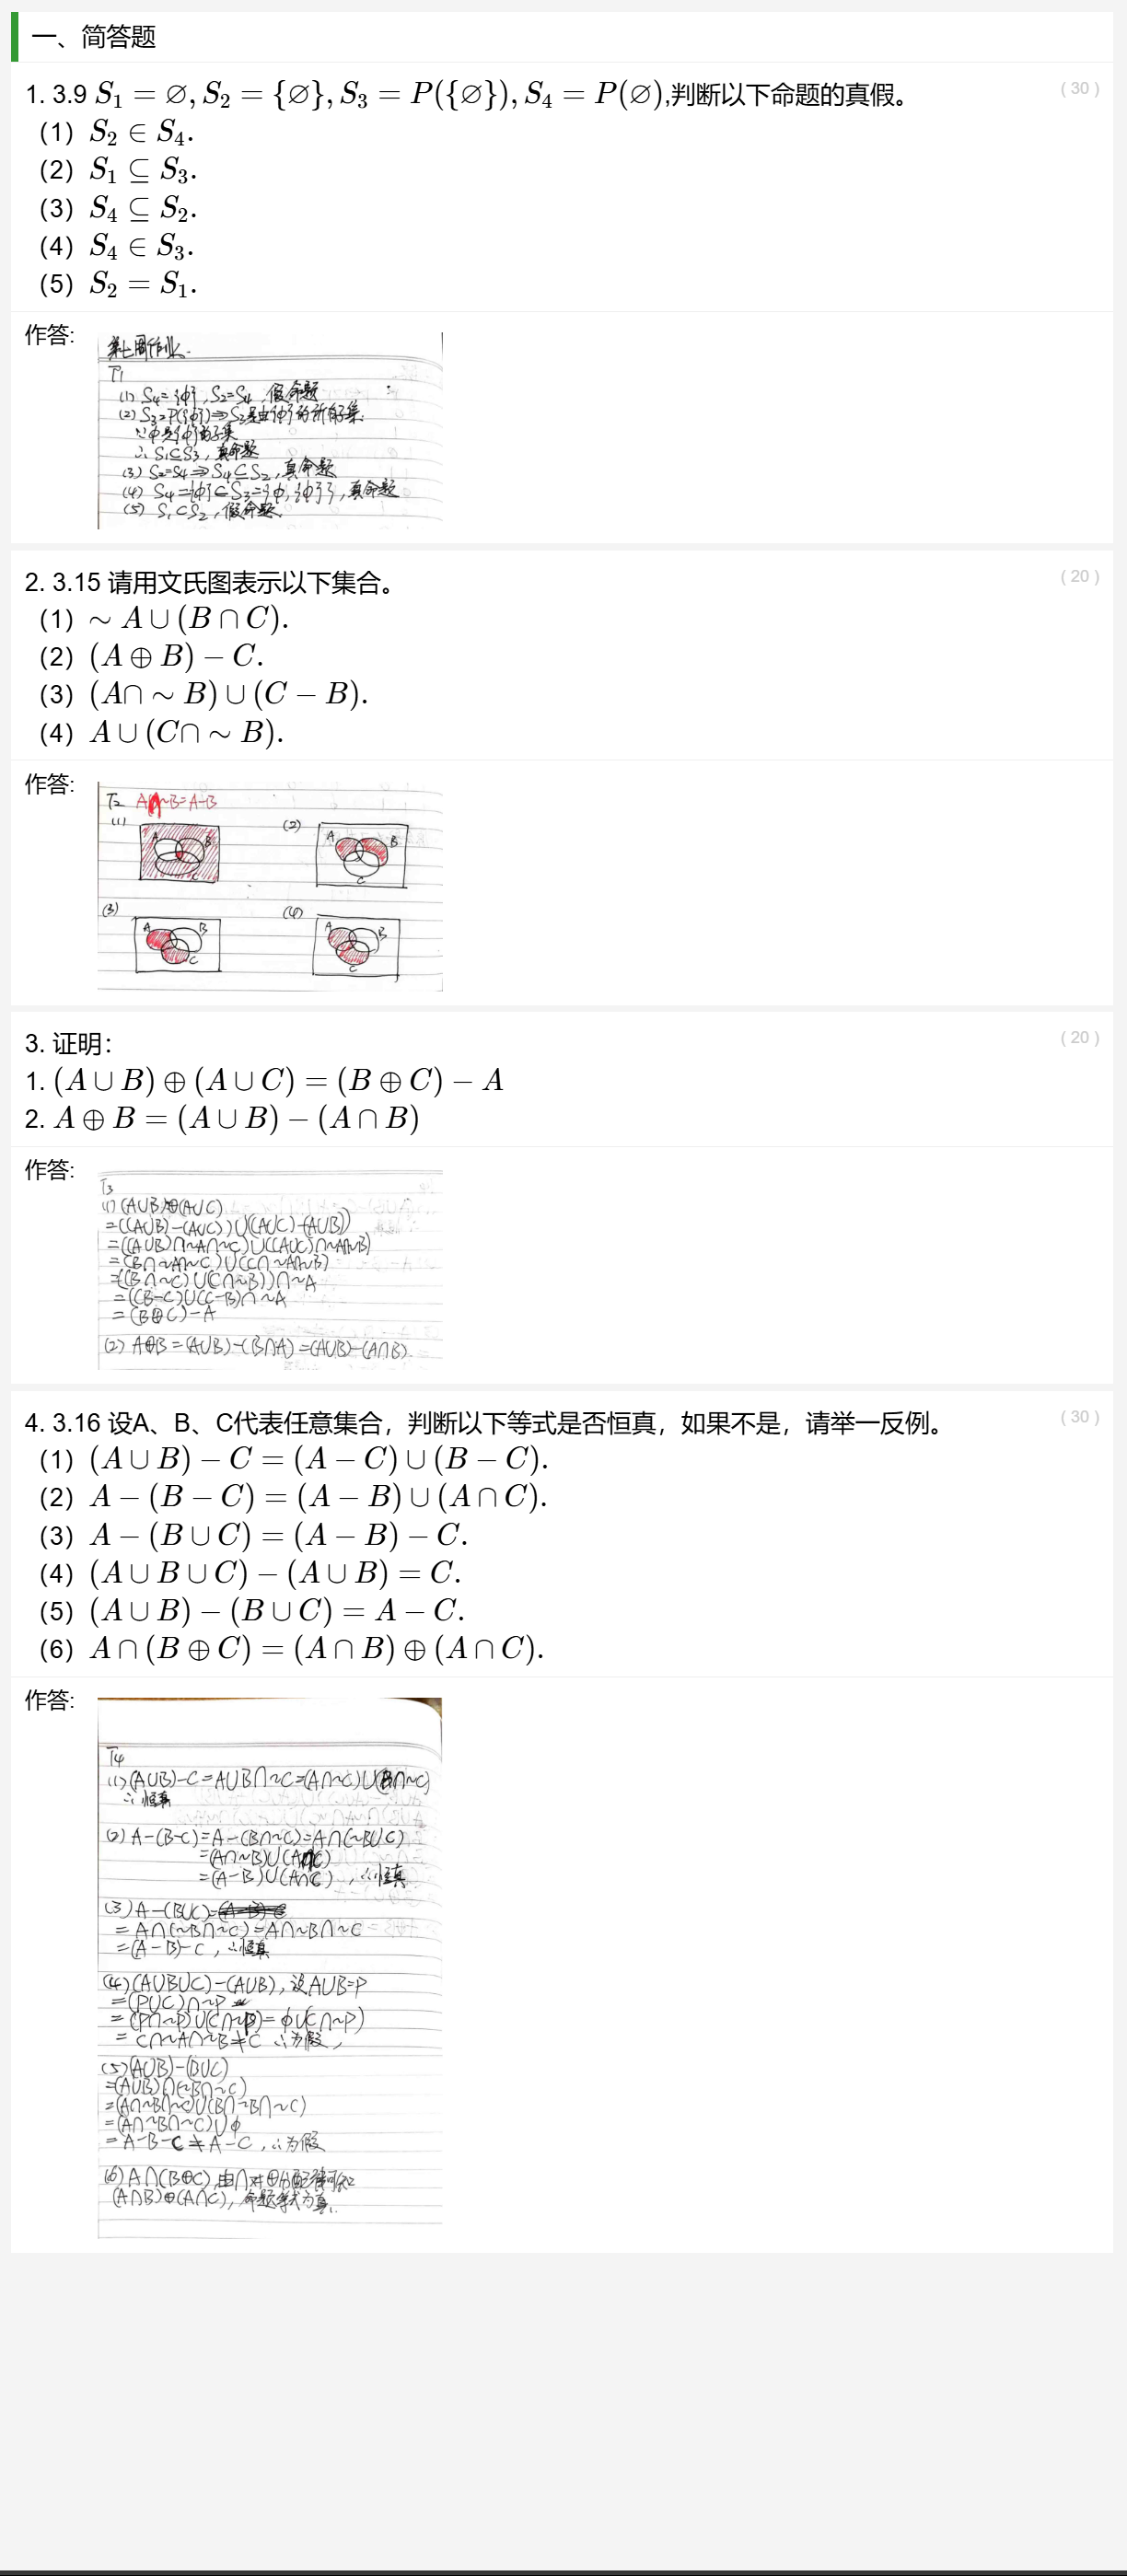 一、简答题
1. 3.9 S₁ = ∅, S₂ = {∅}, S₃ = P({∅}), S₄ = P(∅),判断以下命题的真假。
( 30 )
（1）S₂ ∈ S₄.
（2）S₁ ⊆ S₃.
（3）S₄ ⊆ S₂.
（4）S₄ ∈ S₃.
（5）S₂ = S₁.
作答:
第七周作业.
T1
(1) S₄={ϕ}, S₂=S₄, 假命题
(2) S₃=P({ϕ})⇒S₃是由{ϕ}的所有子集
∵ϕ是{ϕ}的子集
∴S₁⊆S₃, 真命题
(3) S₂=S₄⇒S₄⊆S₂, 真命题
(4) S₄={ϕ}∈S₃={ϕ,{ϕ}}, 真命题
(5) S₁⊂S₂, 假命题.
2. 3.15 请用文氏图表示以下集合。
( 20 )
（1）∼ A ∪ (B ∩ C).
（2）(A ⊕ B) − C.
（3）(A∩ ∼ B) ∪ (C − B).
（4）A ∪ (C∩ ∼ B).
作答:
T2 A∩~B=A-B
(1) (2)
A B C
A B C
(3) (4)
A B C
A B C
3. 证明：
( 20 )
1. (A ∪ B) ⊕ (A ∪ C) = (B ⊕ C) − A
2. A ⊕ B = (A ∪ B) − (A ∩ B)
作答:
T3
(1) (A∪B)⊕(A∪C)
=((A∪B)-(A∪C))∪((A∪C)-(A∪B))
=((A∪B)∩~A∩~C)∪((A∪C)∩~A∩~B)
=(B∩~A∩~C)∪(C∩~A∩~B)
=((B∩~C)∪(C∩~B))∩~A
=((B-C)∪(C-B)∩~A
=(B⊕C)-A
(2) A⊕B=(A∪B)-(B∩A)=(A∪B)-(A∩B)
4. 3.16 设A、B、C代表任意集合，判断以下等式是否恒真，如果不是，请举一反例。
( 30 )
（1）(A ∪ B) − C = (A − C) ∪ (B − C).
（2）A − (B − C) = (A − B) ∪ (A ∩ C).
（3）A − (B ∪ C) = (A − B) − C.
（4）(A ∪ B ∪ C) − (A ∪ B) = C.
（5）(A ∪ B) − (B ∪ C) = A − C.
（6）A ∩ (B ⊕ C) = (A ∩ B) ⊕ (A ∩ C).
作答:
T4
(1) (A∪B)-C=A∪B∩~C=(A∩~C)∪(B∩~C)
∴恒真
(2) A-(B-C)=A-(B∩~C)=A∩(~B∪C)
=(A∩~B)∪(A∩C)
=(A-B)∪(A∩C), ∴恒真
(3) A-(B∪C)=
=A∩(~B∩~C)=A∩~B∩~C
=(A-B)-C, ∴恒真
(4) (A∪B∪C)-(A∪B), 设A∪B=P
=(P∪C)∩~P
=(P∩~P)∪(C∩~P)=ϕ∪(C∩~P)
=C∩~A∩~B≠C ∴为假,
(5) (A∪B)-(B∪C)
=(A∪B)∩(~B∩~C)
=(A∩~B∩~C)∪(B∩~B∩~C)
=(A∩~B∩~C)∪ϕ
=A-B-C≠A-C, ∴为假
(6) A∩(B⊕C), 由∩对⊕分配律可知
(A∩B)⊕(A∩C), 命题等式为真.